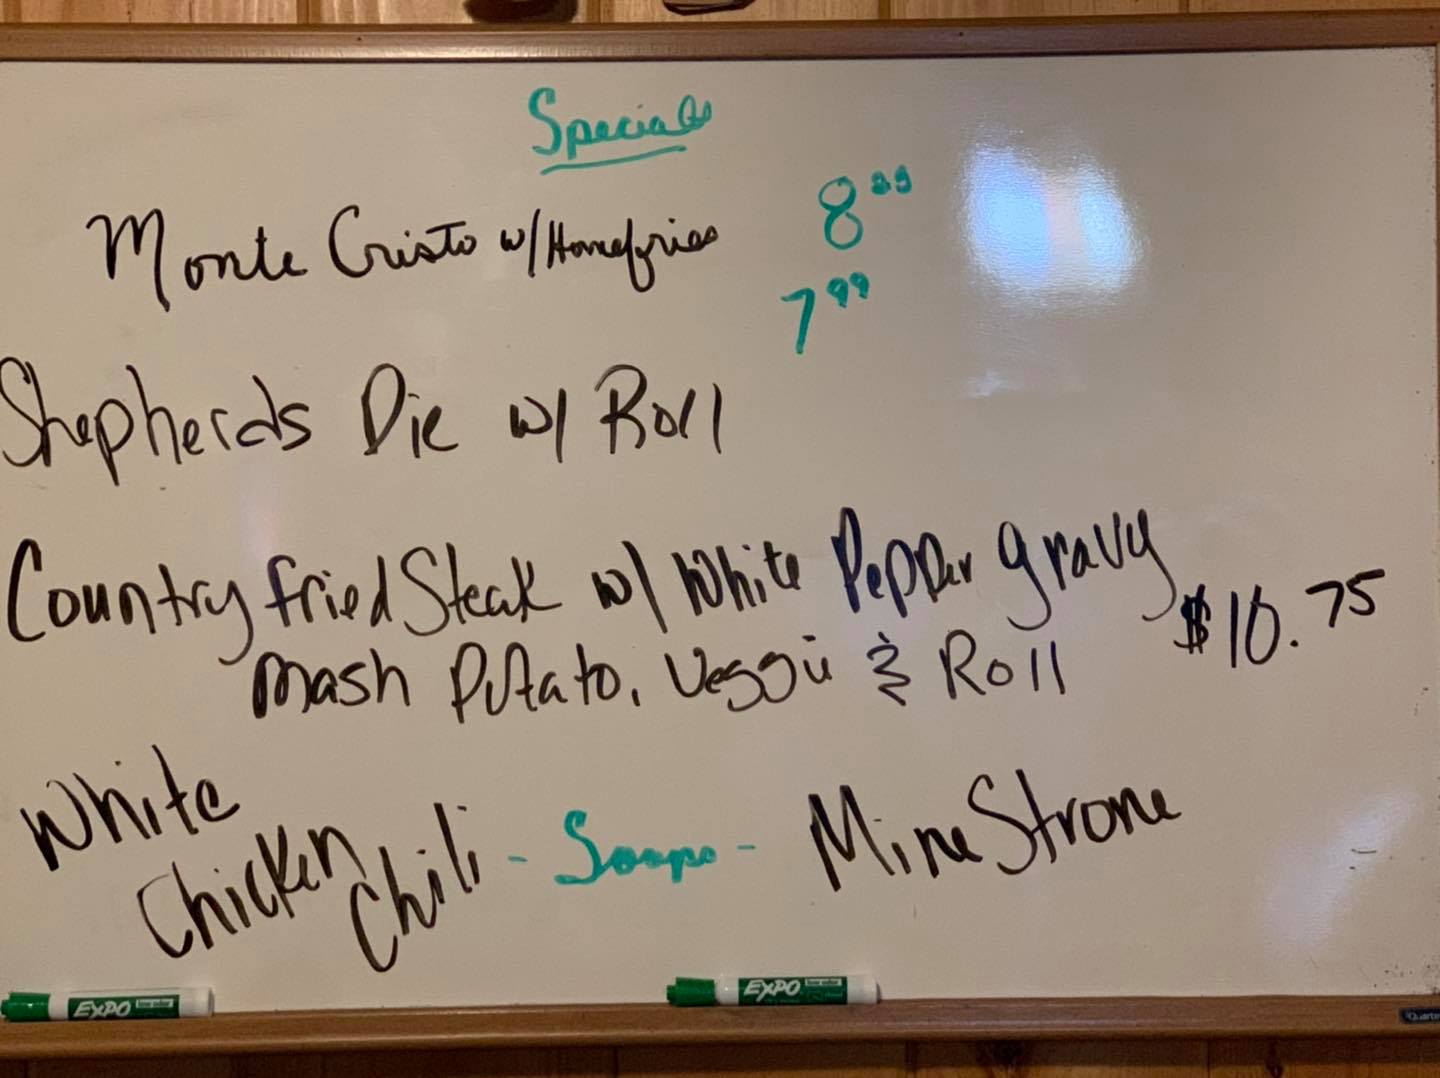 Specials
Monte Cristo w/Homefries 8 99
7 99
Shepherds Pie w/ Roll
Country fried Steak w/ White Pepper gravy
mash Potato, Veggie & Roll $10.75
White
Chicken
Chili - Soups - MineStrone
EXPO EXPO
Quartet